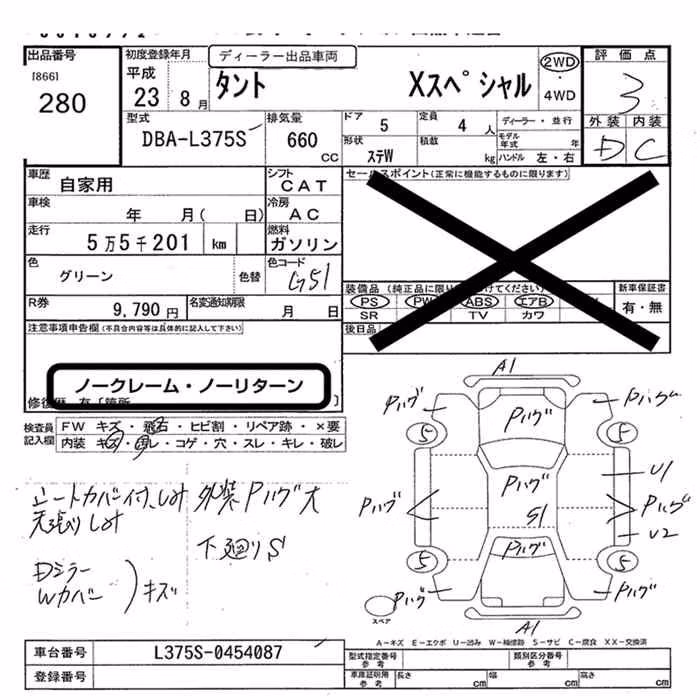 出品番号
[866]
280
初度登録年月
平成
23年 8月
ディーラー出品車両
タント Xスペシャル
2WD
・
4WD
評価点
3
外装 内装
D C
型式
DBA-L375S
排気量
660
CC
ドア
5
定員
4 人
形状
ステW
積載
kg
ディーラー・並行
モデル
年式 年
ハンドル 左・右
車歴
自家用
シフト
CAT
車検
年 月( 日)
冷房
AC
走行
5万5千201 km
燃料
ガソリン
色
グリーン
色替
色コード
G51
R券
9,790 円
名変通知期限
月 日
セールスポイント(正常に機能するものに限ります)
装備品
PS PW ABS エアB
SR TV カワ
新車保証書
有・無
後日品
注意事項申告欄(不具合内容等は具体的に記入して下さい)
ノークレーム・ノーリターン
検査員
記入欄
FW キズ・飛石・ヒビ割・リペア跡・×要
内装・キズ・汚レ・コゲ・穴・スレ・キレ・破レ
シートカバー付、しみ
天張りしみ
外装Pハゲ大
下廻りS
Dミラー
Wカバー
)キズ
A1
Pハゲ Pハゲ Pハゲ
5 5
Pハゲ
U1
Pハゲ Pハゲ
S1
U2
Pハゲ
5 5
Pハゲ Pハゲ
スペア
A1
A-キズ E-エクボ U-凹み W-補修跡 S-サビ C-腐食 XX-交換済
車台番号
L375S-0454087
登録番号
型式指定番号
参考
類別区分番号
参考
車庫証明用
参考
長さ cm
幅 cm
高さ cm